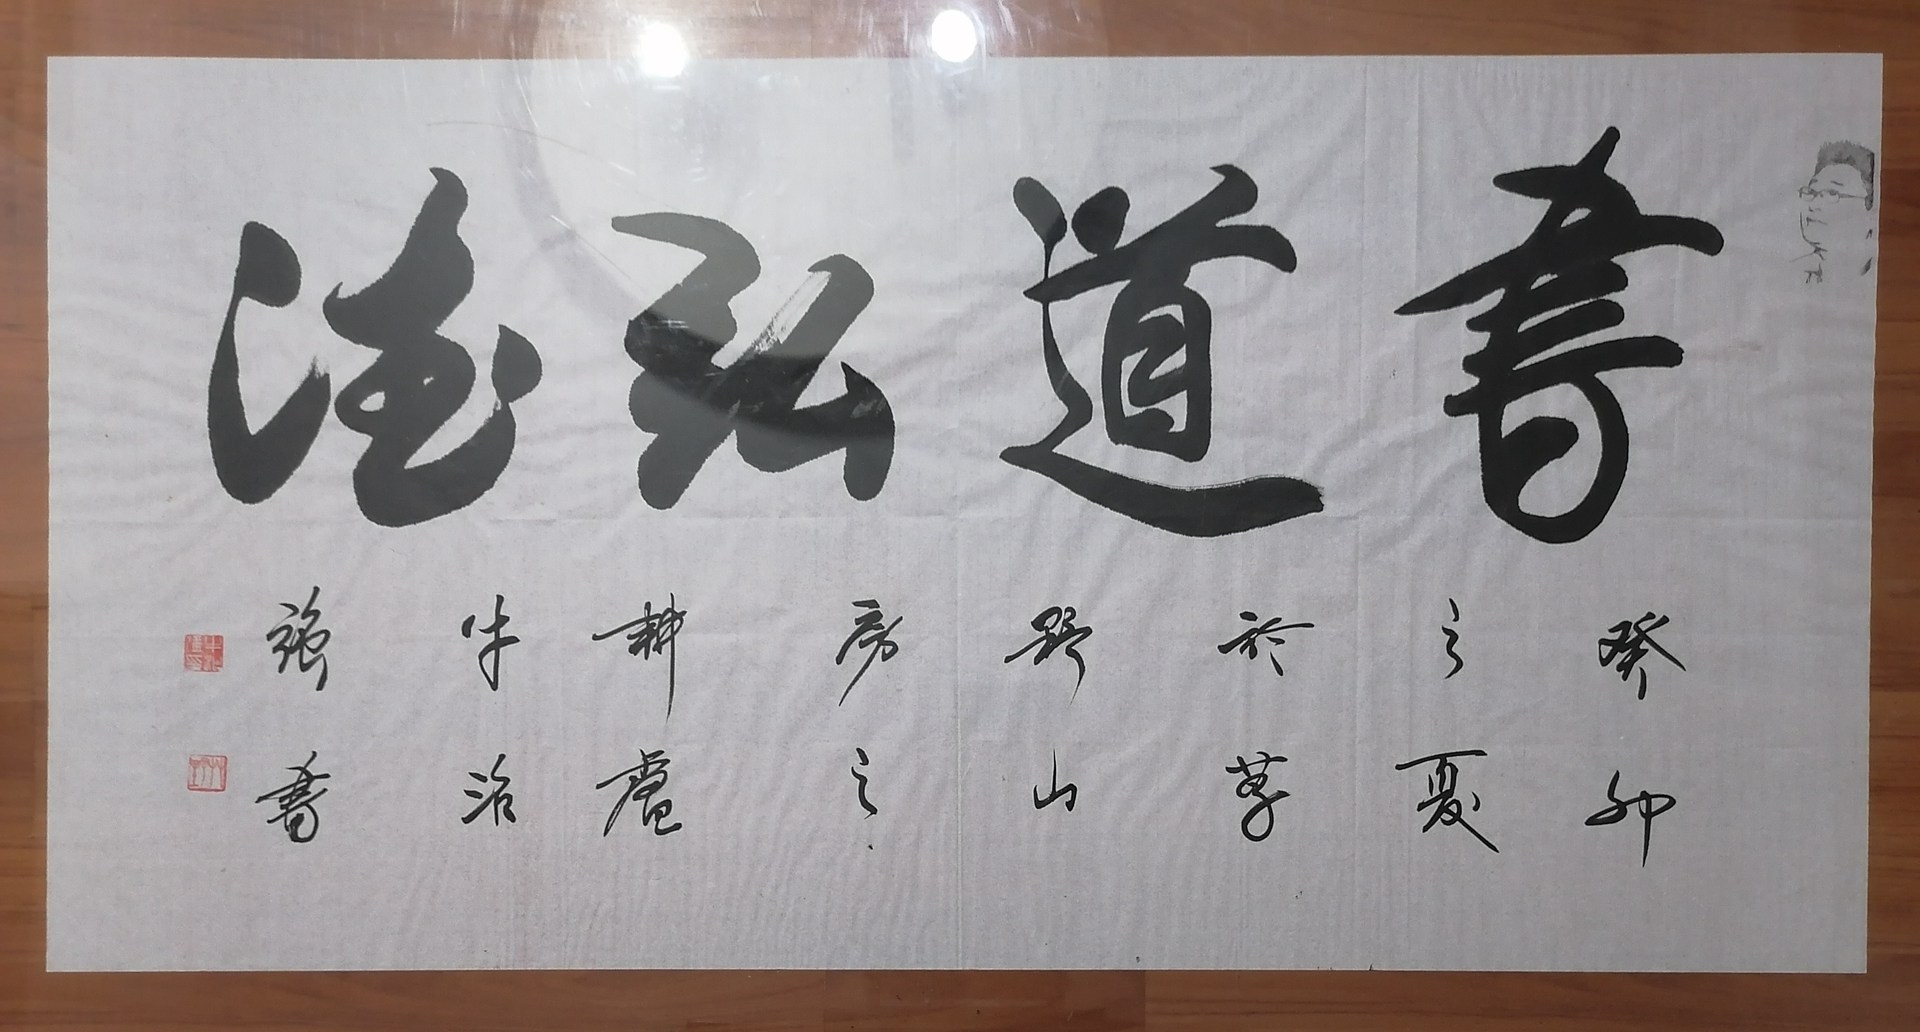 書道弘德
癸卯
之夏
於莘
野山
房之
耕廬
牛治
強書